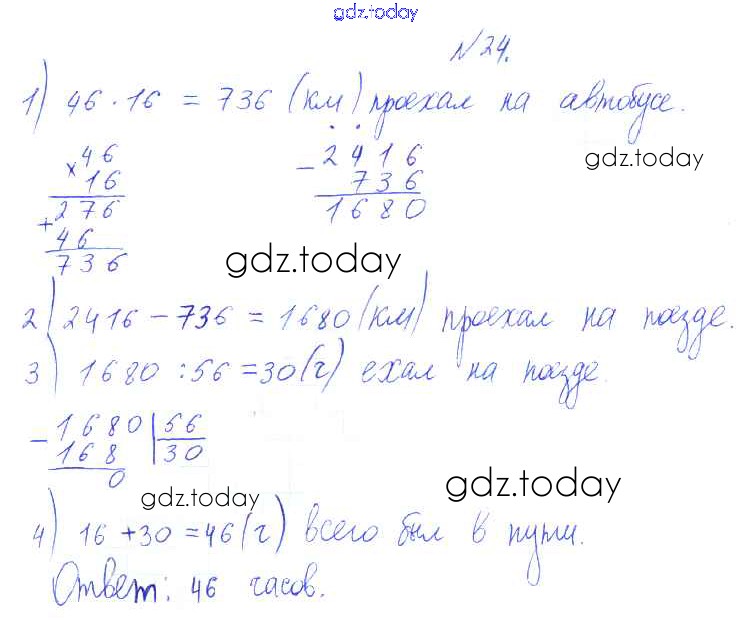 gdz.today
№24.
1) 46 · 16 = 736 (км) проехал на автобусе.
× 46
16
276
+
46
736
- 2416
736
1680
gdz.today
gdz.today
2) 2416 - 736 = 1680 (км) проехал на поезде.
3) 1680 : 56 = 30 (ч) ехал на поезде.
- 1680 | 56
168 | 30
0
gdz.today
gdz.today
4) 16 + 30 = 46 (ч) всего был в пути.
Ответ: 46 часов.